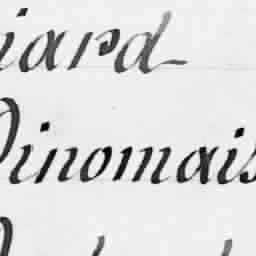 iard
Dinomais